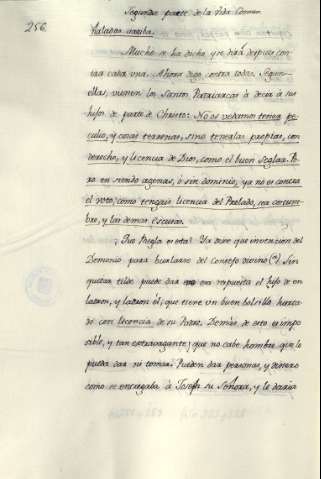 Segunda parte de la Vida Comun
256
Mucho se ha dicho, y se dirá despues con
tra cada una. Ahora digo contra todas. Segun
ellas, vienen los Santos Patriarcas á decir á sus
hijos de parte de Christo: No os vedamos tener pe
culio, y cosas terrenas, sino tenerlas propias, con
derecho, y licencia de Dios, como el buen Seglar. Pe
ro en siendo agenas, ó sin dominio, ya no es contra
el voto, como tengais licencia del Prelado, sea costum
bre, y las demas escusas.
Que Regla es esta? Ya dixe que invencion del
Demonio para burlarse del consejo divino (*) Sin
quitar tilde puede dar esa respuesta el hijo de un
ladron, y ladron él, que tiene un buen bolsillo hurta
do con licencia de su Padre. Demás de esto es impo
sible, y tan extravagante, que no cabe hombre que le
pueda dar ni tomar. Pueden dar personas, y dinero
como se encargaba á Josef su Señora, y le daria